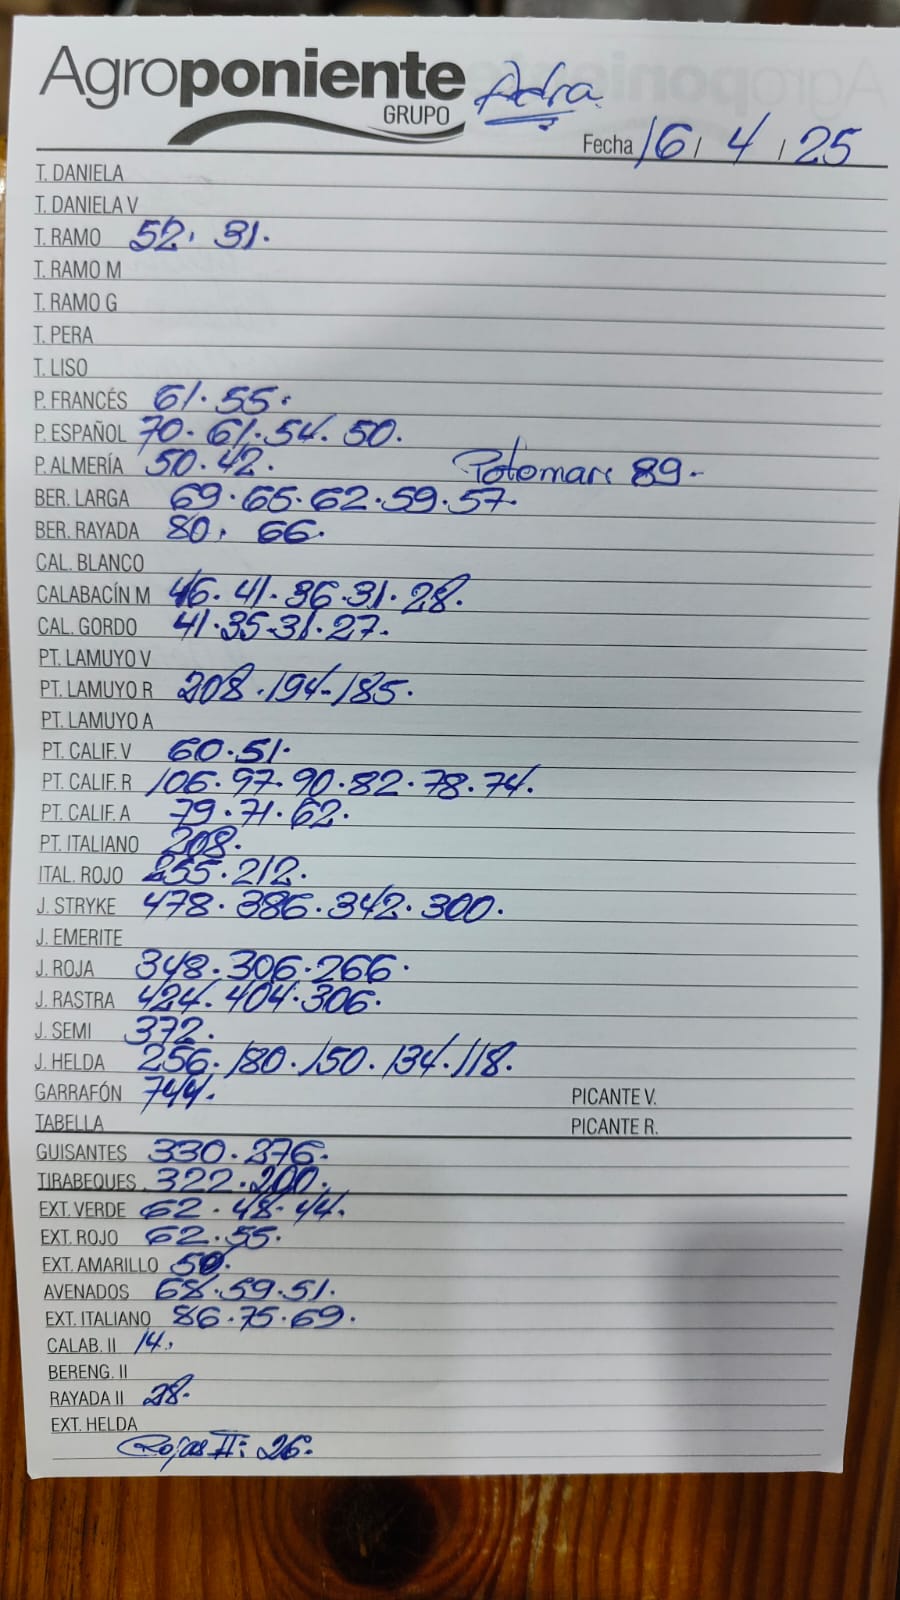 Agroponiente
GRUPO
Adra
Fecha 16 / 4 / 25
T. DANIELA
T. DANIELA V
T. RAMO 52. 31.
T. RAMO M
T. RAMO G
T. PERA
T. LISO
P. FRANCÉS 61. 55.
P. ESPAÑOL 70. 61. 54. 50.
P. ALMERÍA 50. 42. Potomac 89.
BER. LARGA 69. 65. 62. 59. 57.
BER. RAYADA 80. 66.
CAL. BLANCO
CALABACÍN M 46. 41. 36. 31. 28.
CAL. GORDO 41. 35. 31. 27.
PT. LAMUYO V
PT. LAMUYO R 208. 194. 185.
PT. LAMUYO A
PT. CALIF. V 60. 51.
PT. CALIF. R 106. 97. 90. 82. 78. 74.
PT. CALIF. A 79. 71. 62.
PT. ITALIANO 208.
ITAL. ROJO 255. 212.
J. STRYKE 478. 386. 342. 300.
J. EMERITE
J. ROJA 348. 306. 266.
J. RASTRA 424. 404. 306.
J. SEMI 372.
J. HELDA 256. 180. 150. 134. 118.
GARRAFÓN 744. PICANTE V.
TABELLA PICANTE R.
GUISANTES 330. 276.
TIRABEQUES 322. 200.
EXT. VERDE 62. 48. 44.
EXT. ROJO 62. 55.
EXT. AMARILLO 50.
AVENADOS 68. 59. 51.
EXT. ITALIANO 86. 75. 69.
CALAB. II 14.
BERENG. II
RAYADA II 28.
EXT. HELDA
Rojas II: 26.